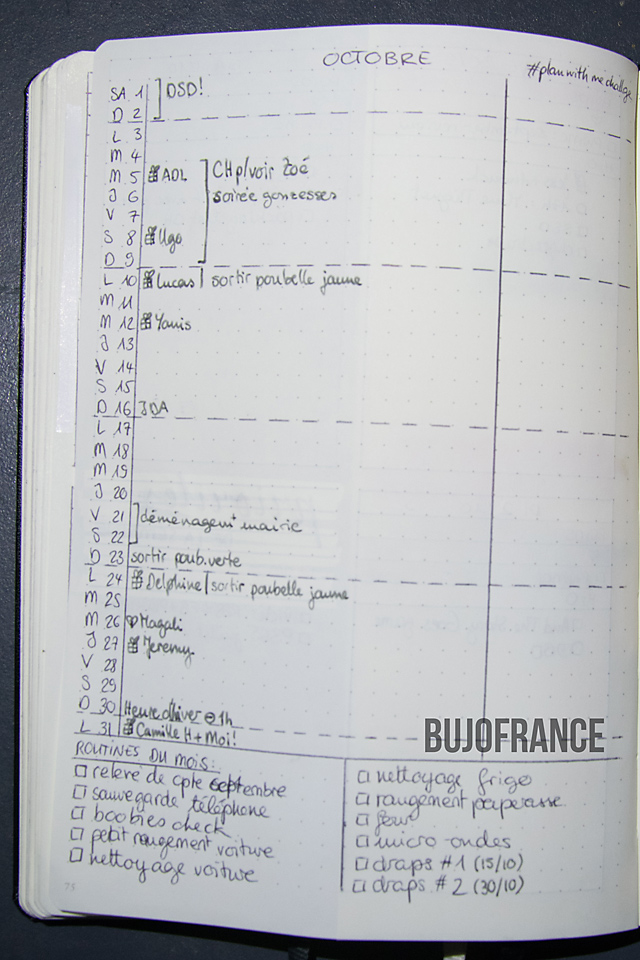 OCTOBRE
#planwithmechallge
SA 1 DSD!
D 2
L 3
M 4
M 5 ADL CHp/voir Zoé
J 6 soirée gonzesses
V 7
S 8 Ugo
D 9
L 10 Lucas | sortir poubelle jaune
M 11
M 12 Yanis
J 13
V 14
S 15
D 16 JDA
L 17
M 18
M 19
J 20
V 21 déménagem^t mairie
S 22
D 23 sortir poub. verte
L 24 Delphine | sortir poubelle jaune
M 25
M 26 ♡ Magali
J 27 Jeremy
V 28
S 29
D 30 Heure d'hiver ⊖ 1h
L 31 Camille H + Moi!
BUJOFRANCE
ROUTINES DU MOIS:
□ relevé de cpte septembre
□ sauvegarde téléphone
□ boobies check
□ petit rangement voiture
□ nettoyage voiture
□ nettoyage frigo
□ rangement paperasse
□ four
□ micro-ondes
□ draps #1 (15/10)
□ draps #2 (30/10)
75